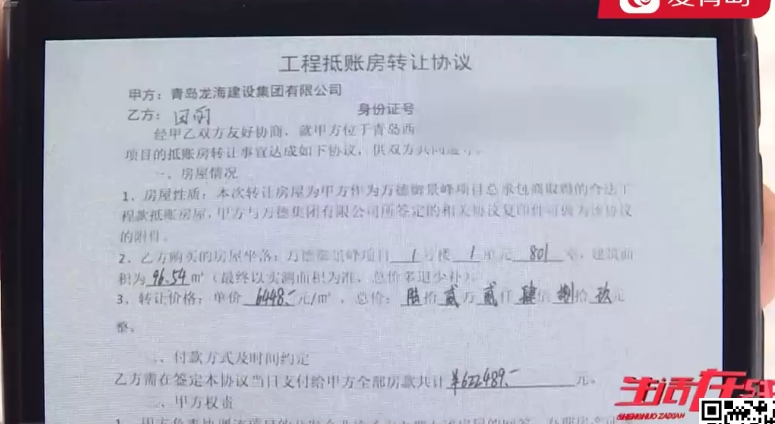 爱青岛
工程抵账房转让协议
甲方：青岛龙海建设集团有限公司
乙方：田莉 身份证号
经甲乙双方友好协商，就甲方位于青岛西
项目的抵账房转让事宜达成如下协议，供双方共同遵守。
一、房屋情况
1、房屋性质：本次转让房屋为甲方作为万德御景峰项目总承包商取得的合法工
程款抵账房屋，甲方与万德集团有限公司所签定的相关协议复印件可做为该协议
的附件。
2、乙方购买的房屋坐落：万德御景峰项目 1 号楼 1 单元 801 室，建筑面
积为 96.54 ㎡（最终以实测面积为准，总价多退少补）。
3、转让价格：单价 6448.- 元/㎡，总价：陆拾贰万贰仟肆佰捌拾玖元
整。
二、付款方式及时间约定
乙方需在签定本协议当日支付给甲方全部房款共计 ¥622489.- 元。
三、甲方权责
生活在线
SHENGHUO ZAIXIAN